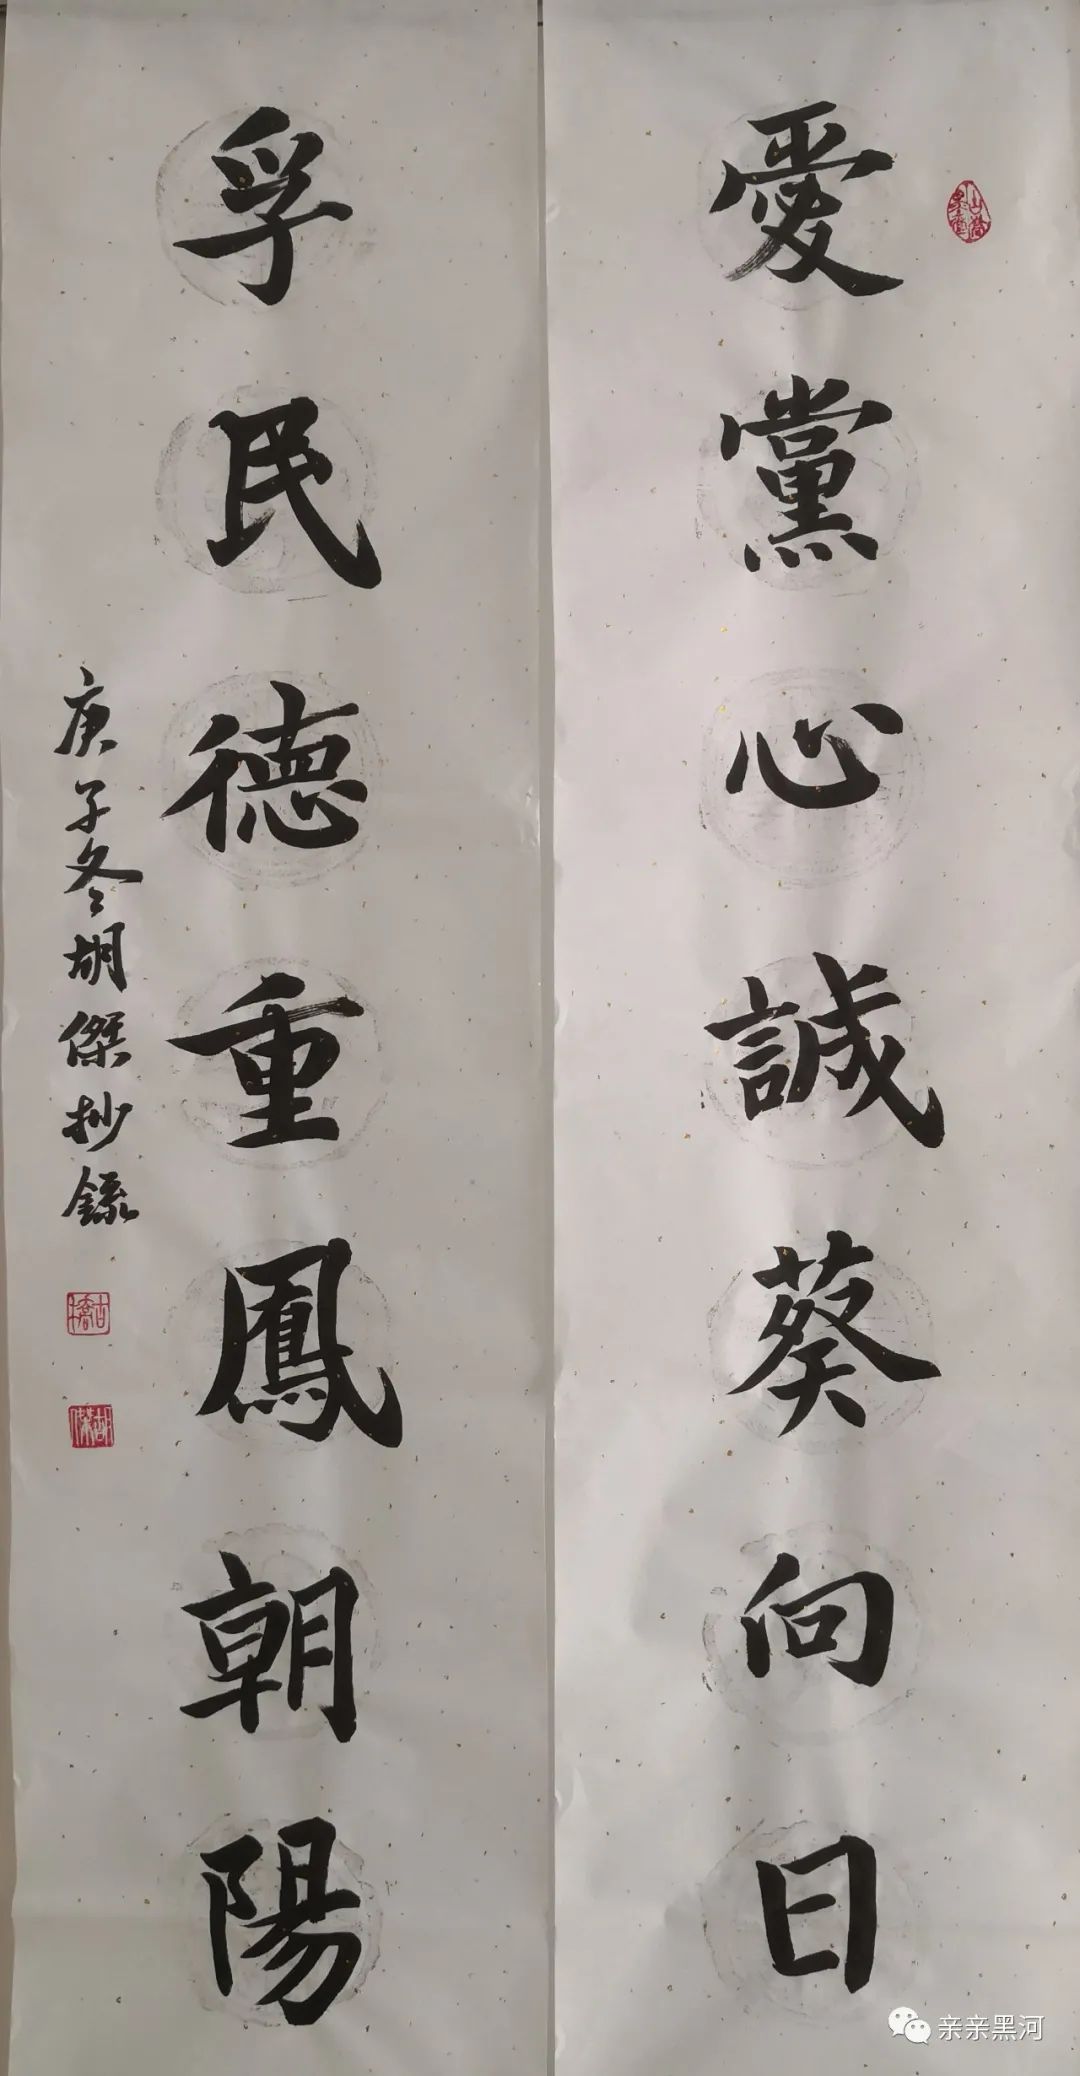 愛黨心誠葵向日
孚民德重鳳朝陽
庚子冬胡傑抄錄
胡傑
亲亲黑河